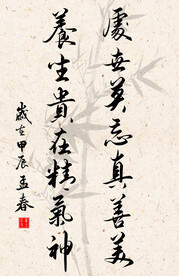 處世莫忘真善美
養生貴在精氣神
歲在甲辰孟春